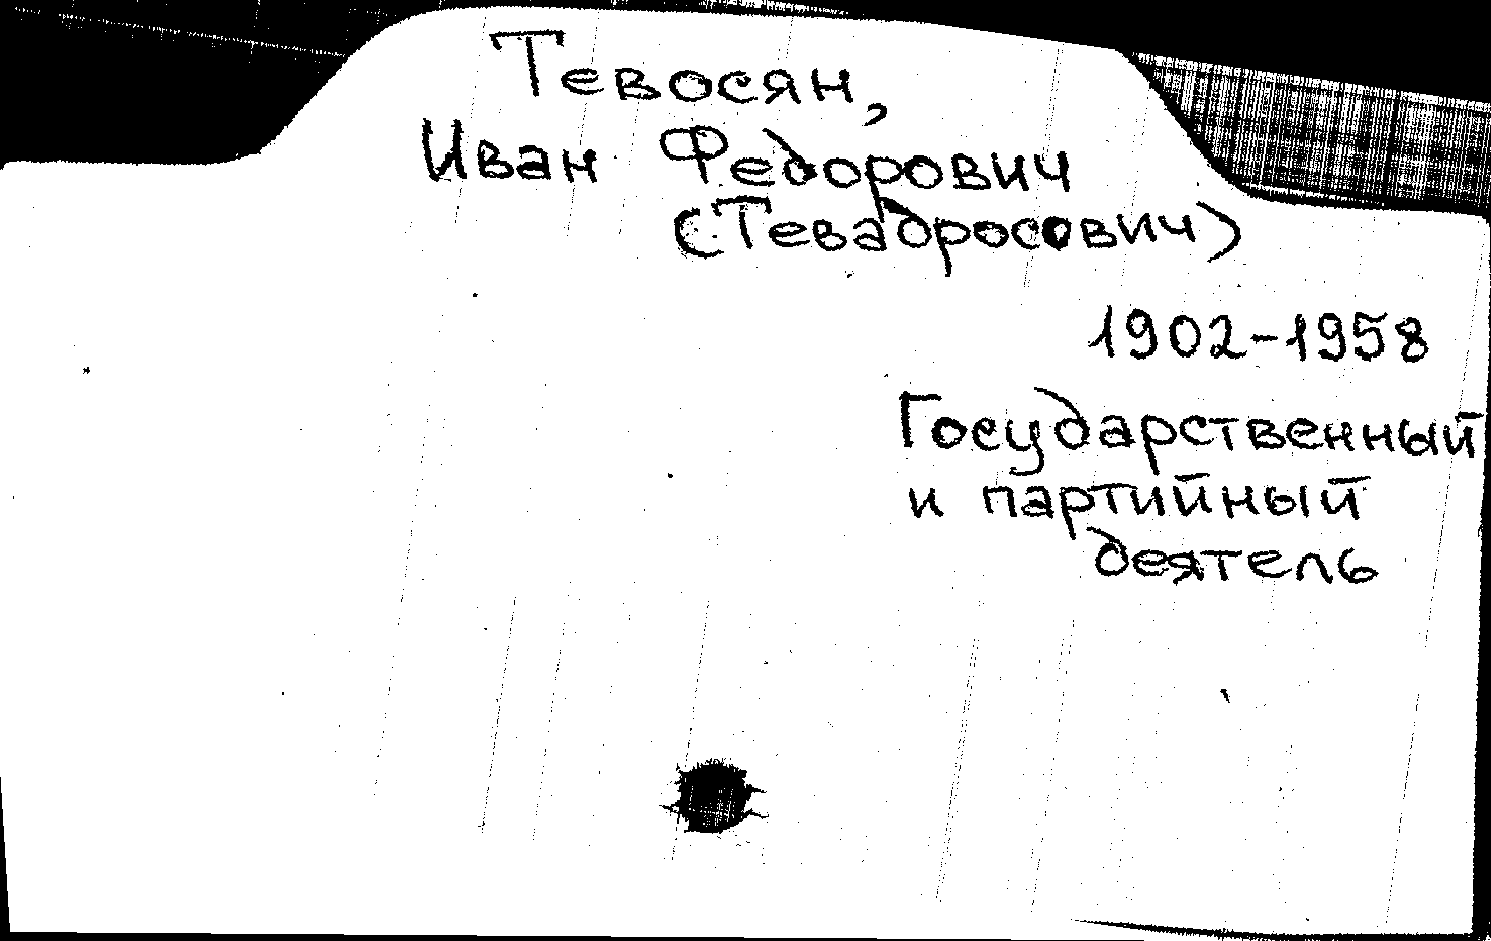 Тевосян,
Иван Федорович
(Тевадросович)
1902-1958
Государственный
и партийный
деятель